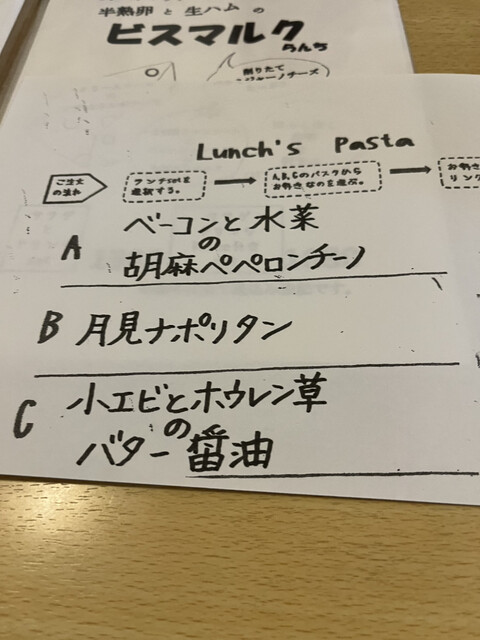 半熟卵と生ハムの
ビスマルク
らんち
削りたて
Lunch's Pasta
ご注文
の流れ
ランチsetを
選択する。
A,B,Cのパスタから
お好きなのを選ぶ。
お好き
リンク
A
ベーコンと水菜
の
胡麻ペペロンチーノ
B 月見ナポリタン
C
小エビとホウレン草
の
バター醤油